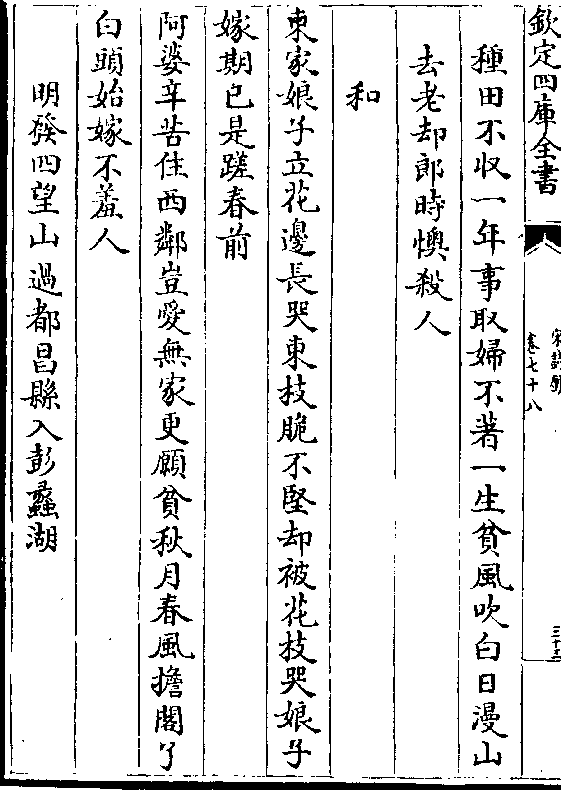 欽定四庫全書
宋詩鈔
卷七十八
三十三
種田不收一年事取婦不著一生貧風吹白日漫山
去老却郎時懊殺人
和
東家娘子立花邊長哭東枝脆不堅却被花枝哭娘子
嫁期已是蹉春前
阿婆辛苦住西鄰豈愛無家更願貧秋月春風擔閣了
白頭始嫁不羞人
明發四望山過都昌縣入彭蠡湖